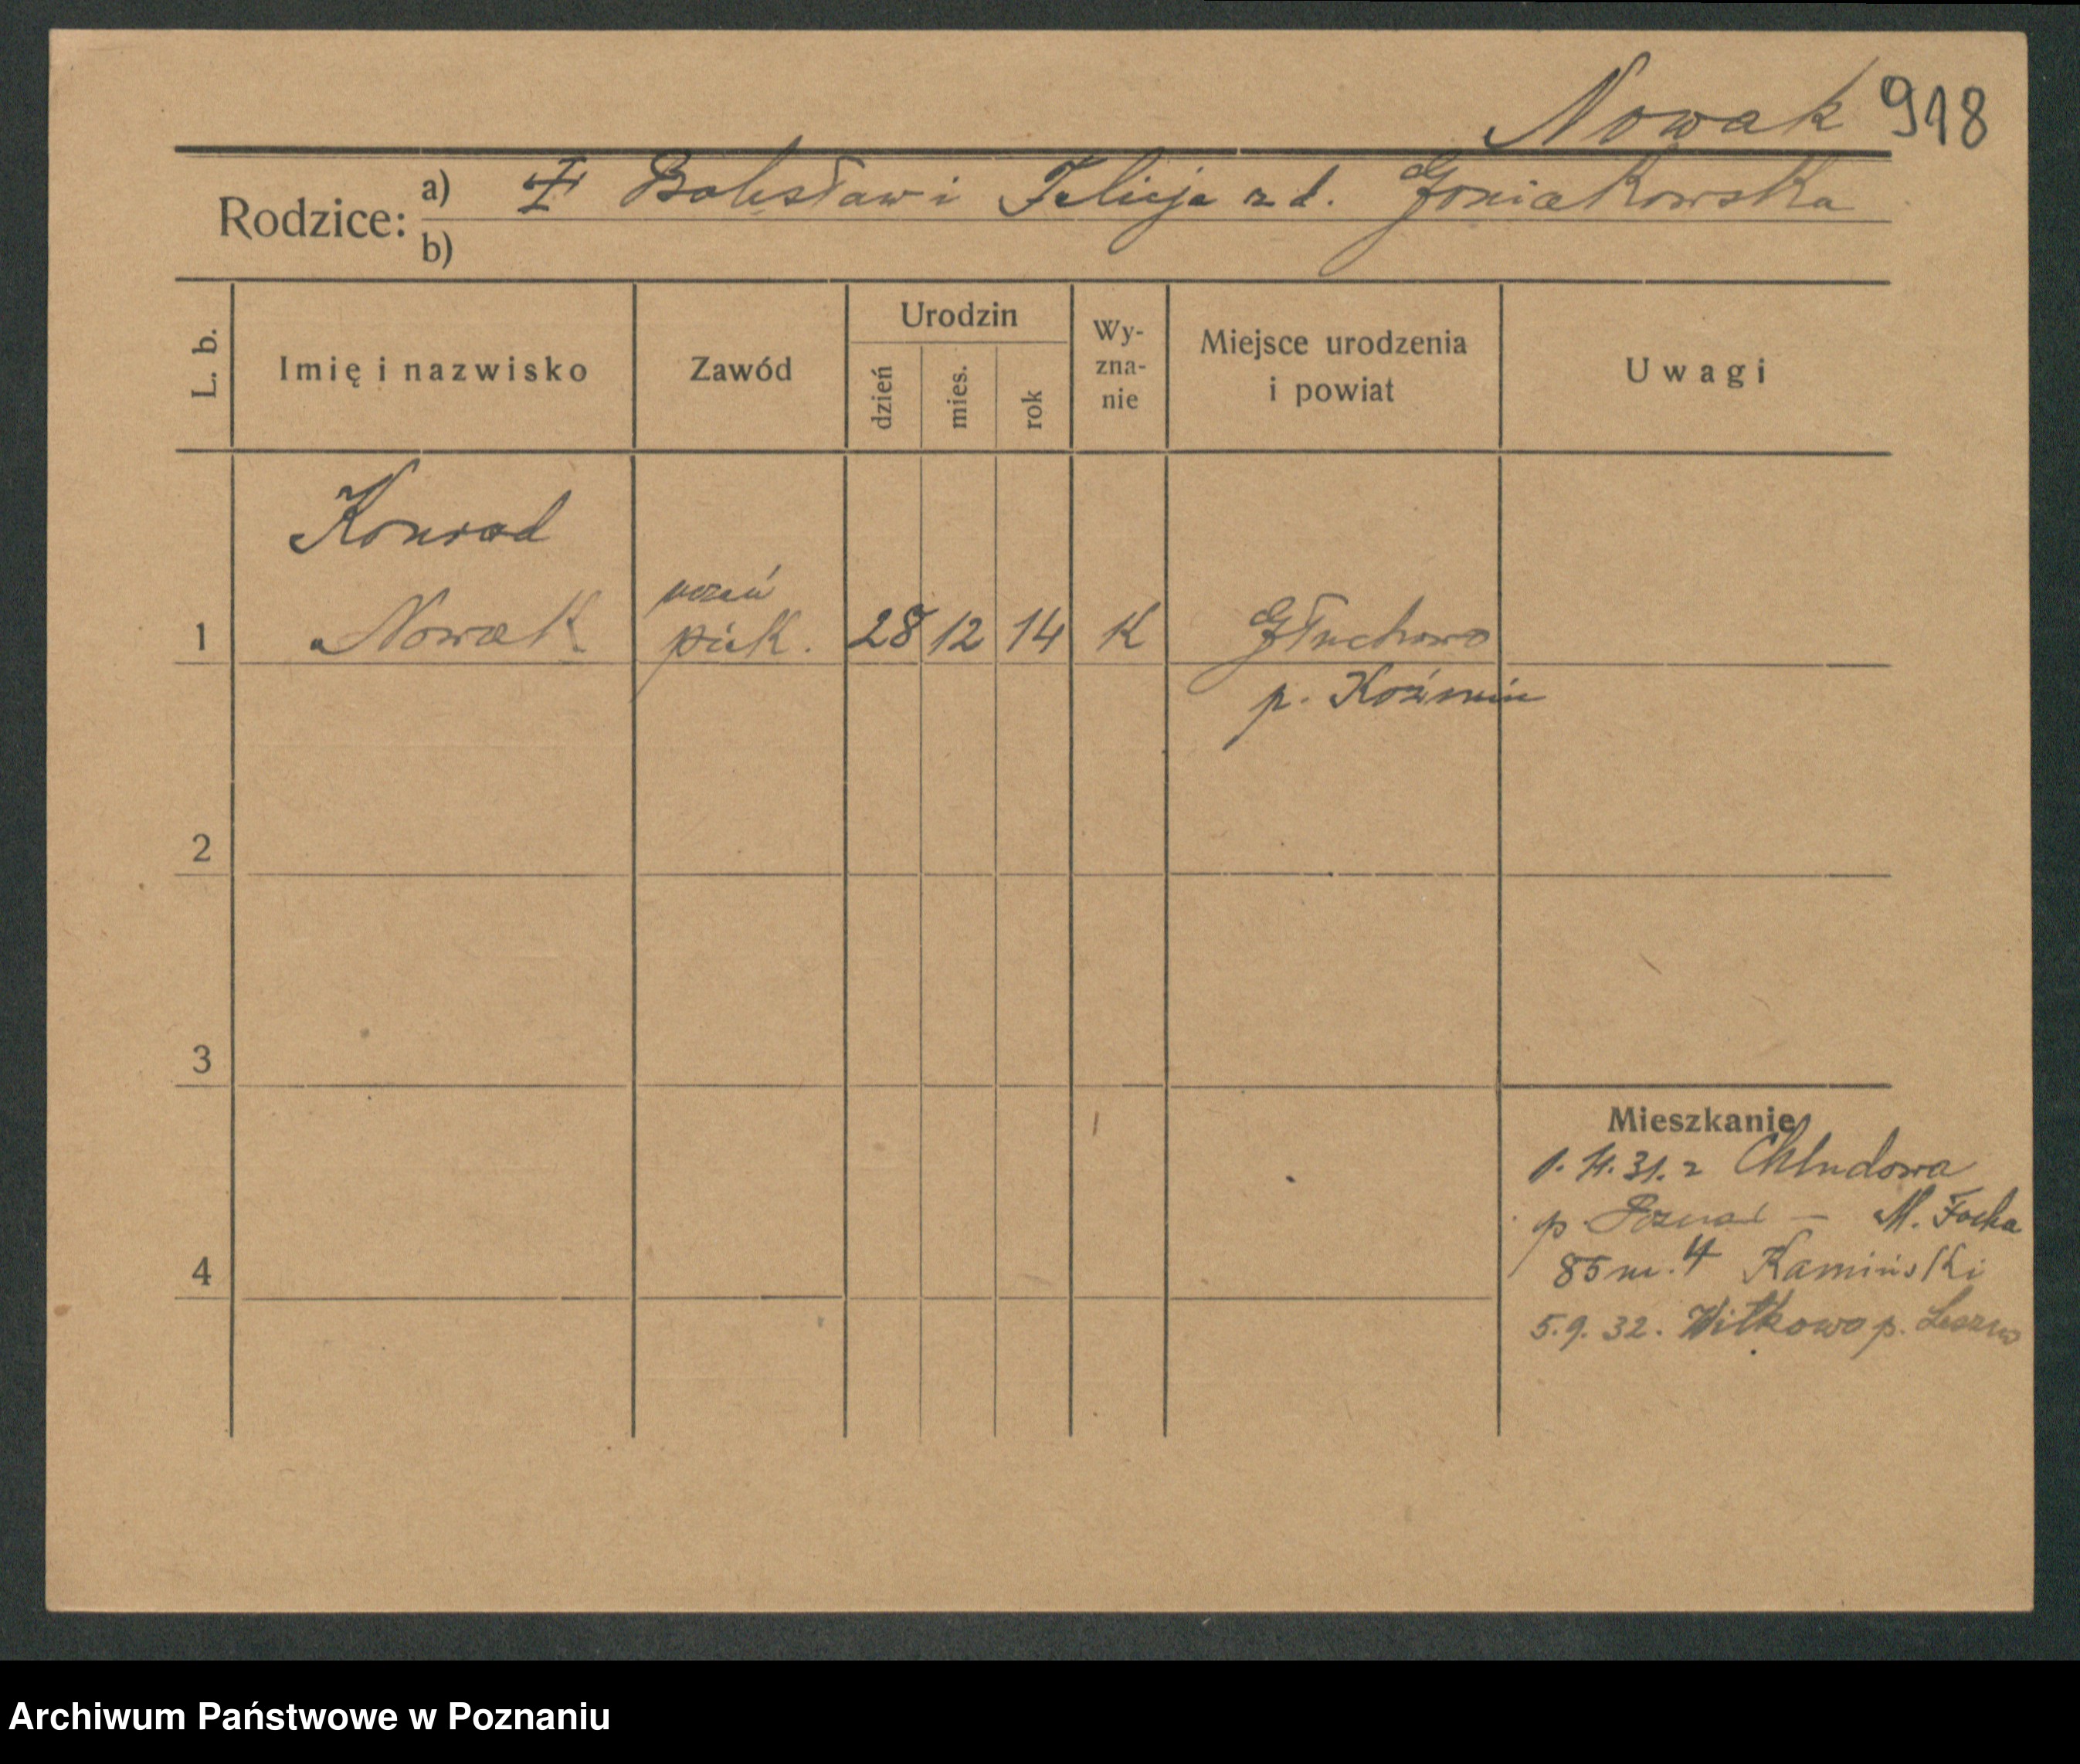 Nowak 918
Rodzice: a) Bolesław i Felicja z d. Goniakowska
b)
L. b. Imię i nazwisko Zawód Urodzin dzień mies. rok Wy-zna-nie Miejsce urodzenia i powiat Uwagi
Konrad
uczeń
1 Nowak piek. 28 12 14 K Głuchowo
p. Koźmin
2
3
Mieszkanie
31. z Chludowa
p. Poznań — M. Focha
4 85 m. 4 Kamiński
5.9.32. Witkowo p. Leszno
Archiwum Państwowe w Poznaniu